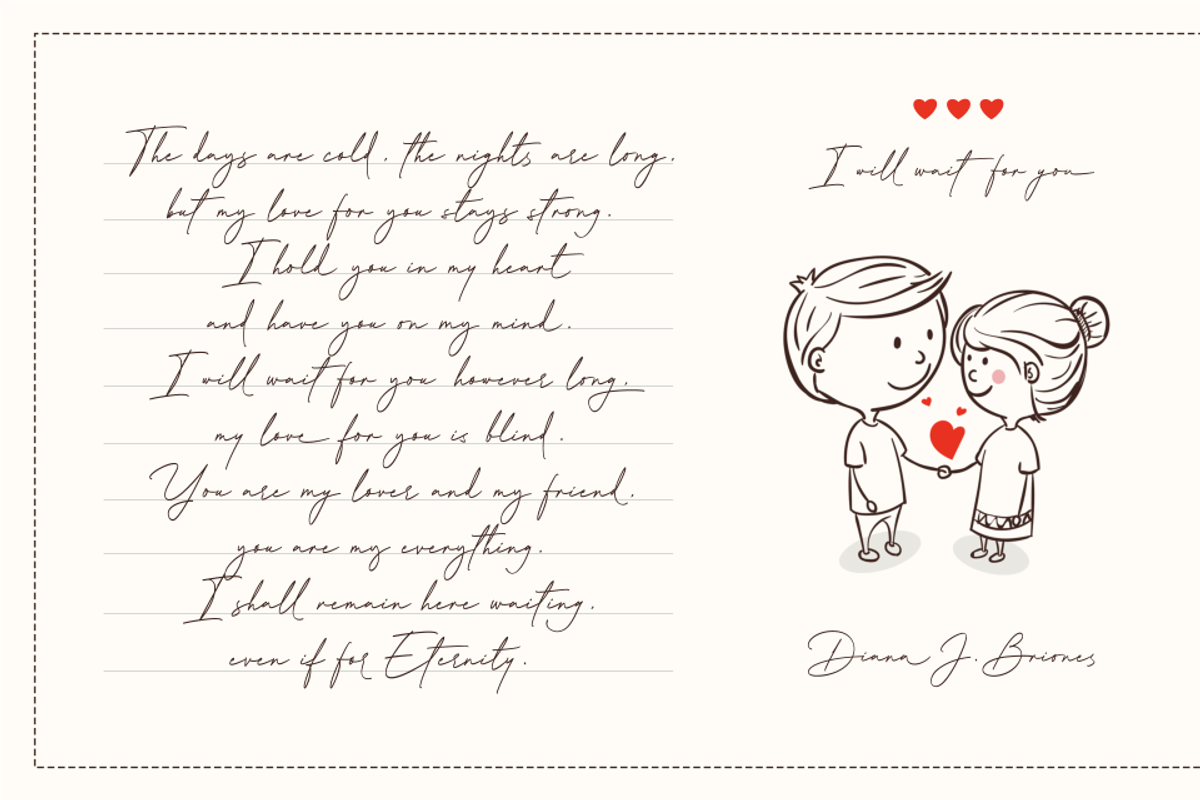 The days are cold, the nights are long,
but my love for you stays strong.
I hold you in my heart
and have you on my mind.
I will wait for you however long,
my love for you is blind.
You are my lover and my friend,
you are my everything.
I shall remain here waiting,
even if for Eternity.
I will wait for you
Diana J. Briones